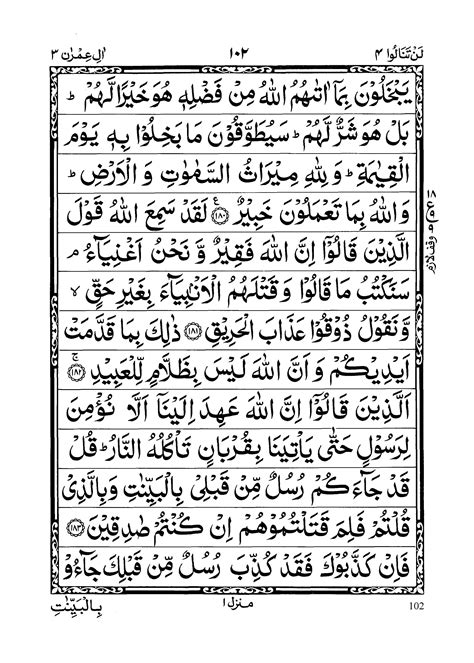 لَنْ تَنَالُوا ٤ ١٠٢ اٰلِ عِمْرٰن ٣
يَبْخَلُوْنَ بِمَاۤ اٰتٰىهُمُ اللّٰهُ مِنْ فَضْلِهٖ هُوَ خَيْرًا لَّهُمْ ؕ
بَلْ هُوَ شَرٌّ لَّهُمْ ؕ سَيُطَوَّقُوْنَ مَا بَخِلُوْا بِهٖ يَوْمَ
الْقِيٰمَةِ ؕ وَ لِلّٰهِ مِيْرَاثُ السَّمٰوٰتِ وَ الْاَرْضِ ؕ
وَاللّٰهُ بِمَا تَعْمَلُوْنَ خَبِيْرٌ ﴿١٨٠﴾ لَقَدْ سَمِعَ اللّٰهُ قَوْلَ
الَّذِيْنَ قَالُوْۤا اِنَّ اللّٰهَ فَقِيْرٌ وَّ نَحْنُ اَغْنِيَآءُ ۘ
سَنَكْتُبُ مَا قَالُوْا وَ قَتْلَهُمُ الْاَنْۢبِيَآءَ بِغَيْرِ حَقٍّ ۙ
وَّ نَقُوْلُ ذُوْقُوْا عَذَابَ الْحَرِيْقِ ﴿١٨١﴾ ذٰلِكَ بِمَا قَدَّمَتْ
اَيْدِيْكُمْ وَ اَنَّ اللّٰهَ لَيْسَ بِظَلَّامٍ لِّلْعَبِيْدِ ۚ ﴿١٨٢﴾
اَلَّذِيْنَ قَالُوْۤا اِنَّ اللّٰهَ عَهِدَ اِلَيْنَاۤ اَلَّا نُؤْمِنَ
لِرَسُوْلٍ حَتّٰى يَاْتِيَنَا بِقُرْبَانٍ تَاْكُلُهُ النَّارُ ؕ قُلْ
قَدْ جَآءَكُمْ رُسُلٌ مِّنْ قَبْلِيْ بِالْبَيِّنٰتِ وَبِالَّذِيْ
قُلْتُمْ فَلِمَ قَتَلْتُمُوْهُمْ اِنْ كُنْتُمْ صٰدِقِيْنَ ﴿١٨٣﴾
فَاِنْ كَذَّبُوْكَ فَقَدْ كُذِّبَ رُسُلٌ مِّنْ قَبْلِكَ جَآءُوْ
بِالْبَيِّنٰتِ منزل ١ 102